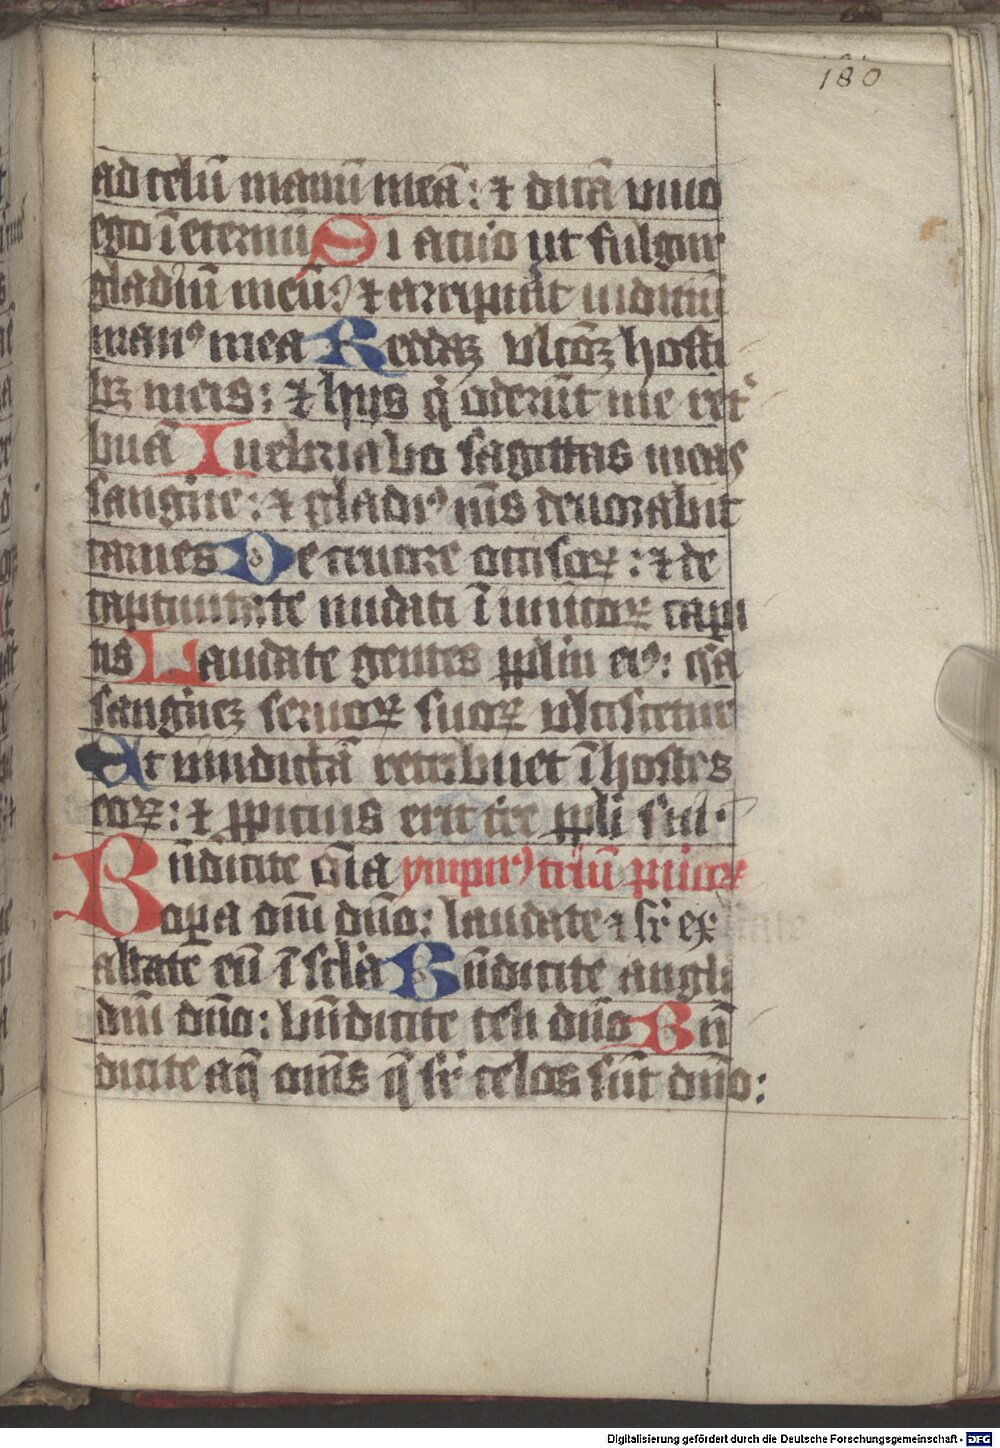 180
ad celū manū meā: ⁊ dicā viuo
ego ī eternū Si acuo ut fulgur
gladiū meū: ⁊ arripuīt iudiciū
manꝰ mea Reddaꝫ vlcōꝫ hosti
bꝫ meis: ⁊ hijs q̄ oderūt me ret
buā Inebriabo sagittas meas
sangīne: ⁊ gladiꝰ mꝰs deuorabit
carnes De cruore occisoꝝ: ⁊ de
captiuitate nudati ī inimicoꝝ capi
tis Laudate gentes pplm eiꝰ: qa
sangīneꝫ seruoꝝ suoꝝ vlciscetur
Et vindictā retribuet ī hostes
eoꝝ: ⁊ ꝓpicius erit tre ppli sui.
Bn̄dicite oīa
opa dm̄i dn̄o: laudate ⁊ sr̄ ex
altate eū ī scl̄a Bn̄dicite angli
dm̄i dn̄o: bn̄dicite celi dn̄o Bn̄
dicite aq̄ om̄s q̄ sr̄ celos sūt dn̄o:
Digitalisierung gefördert durch die Deutsche Forschungsgemeinschaft - DFG